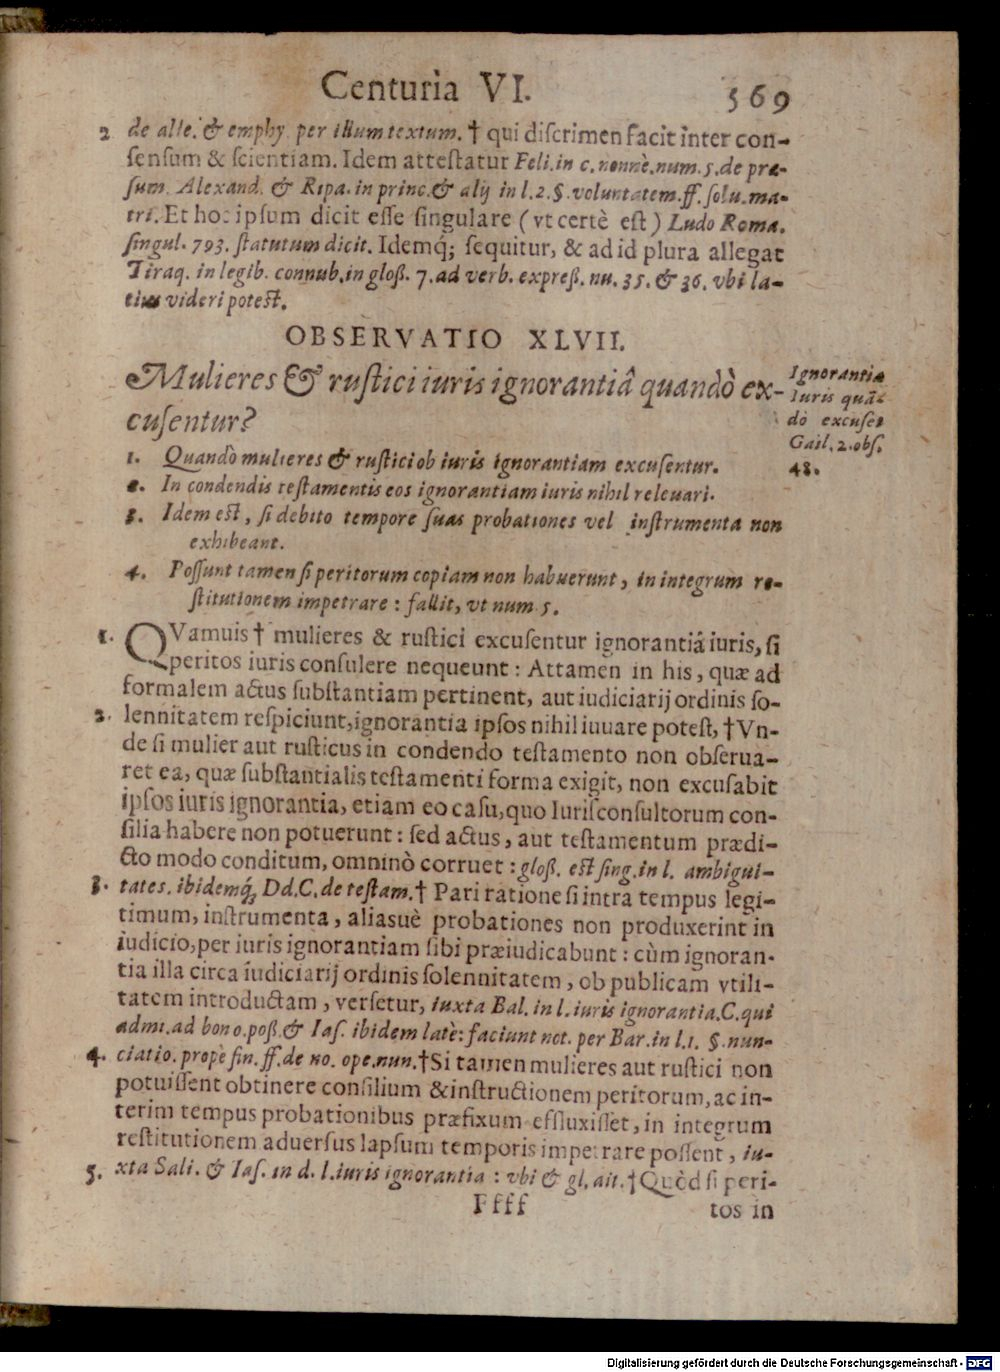 Centuria VI. 569
2 de alle. & emphy. per illum textum. † qui discrimen facit inter con-
sensum & scientiam. Idem attestatur Feli. in c. nonnè. num. 5. de præ-
sum. Alexand. & Ripa. in princ. & alij in l. 2. §. voluntatem. ff. solu. ma-
tri. Et hoc ipsum dicit esse singulare (vt certè est) Ludo Roma.
singul. 793. statutum dicit. Idemq́; sequitur, & ad id plura allegat
Tiraq. in legib. connub. in gloß. 7. ad verb. expreß. nu. 35. & 36. vbi la-
tius videri potest.
OBSERVATIO XLVII.
Mulieres & rustici iuris ignorantiâ quandò ex-
cusentur?
Ignorantia
Iuris quã-
dò excuset
Gail. 2. obs.
48.
1. Quandò mulieres & rustici ob iuris ignorantiam excusentur.
2. In condendis testamentis eos ignorantiam iuris nihil releuari.
3. Idem est, si debito tempore suas probationes vel instrumenta non
exhibeant.
4. Possunt tamen si peritorum copiam non habuerunt, in integrum re-
stitutionem impetrare: fallit, vt num 5.
1. QVamuis † mulieres & rustici excusentur ignorantiâ iuris, si
peritos iuris consulere nequeunt: Attamen in his, quæ ad
formalem actus substantiam pertinent, aut iudiciarij ordinis so-
2. lennitatem respiciunt, ignorantia ipsos nihil iuuare potest, † Vn-
de si mulier aut rusticus in condendo testamento non obserua-
ret ea, quæ substantialis testamenti forma exigit, non excusabit
ipsos iuris ignorantia, etiam eo casu, quo Iurisconsultorum con-
silia habere non potuerunt: sed actus, aut testamentum prædi-
cto modo conditum, omninò corruet: gloß. est sing. in l. ambigui-
3. tates. ibidemq́; Dd. C. de testam. † Pari ratione si intra tempus legi-
timum, instrumenta, aliasuè probationes non produxerint in
iudicio, per iuris ignorantiam sibi præiudicabunt: cùm ignoran-
tia illa circa iudiciarij ordinis solennitatem, ob publicam vtili-
tatem introductam, versetur, iuxta Bal. in l. iuris ignorantia. C. qui
admi. ad bono. poß. & Ias. ibidem latè: faciunt not. per Bar. in l. 1. §. nun-
4. ciatio. propè fin. ff. de no. ope. nun. † Si tamen mulieres aut rustici non
potuissent obtinere consilium & instructionem peritorum, ac in-
terim tempus probationibus præfixum effluxisset, in integrum
restitutionem aduersus lapsum temporis impetrare possent, iu-
5. xta Sali. & Ias. in d. l. iuris ignorantia: vbi & gl. ait. † Quòd si peri-
Ffff tos in
Digitalisierung gefördert durch die Deutsche Forschungsgemeinschaft - DFG